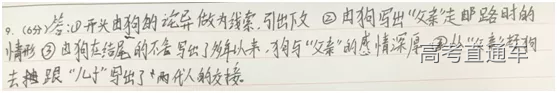 9.(6分)答:①开头由狗的诧异做为线索,引出下文 ②由狗写出"父亲"走邮路时的
情形 ③由狗在结尾的不舍写出了多年以来,狗与"父亲"的感情深厚 ④从"父亲"赶狗
去跟"儿子"写出了两代人的交接.
高考直通车